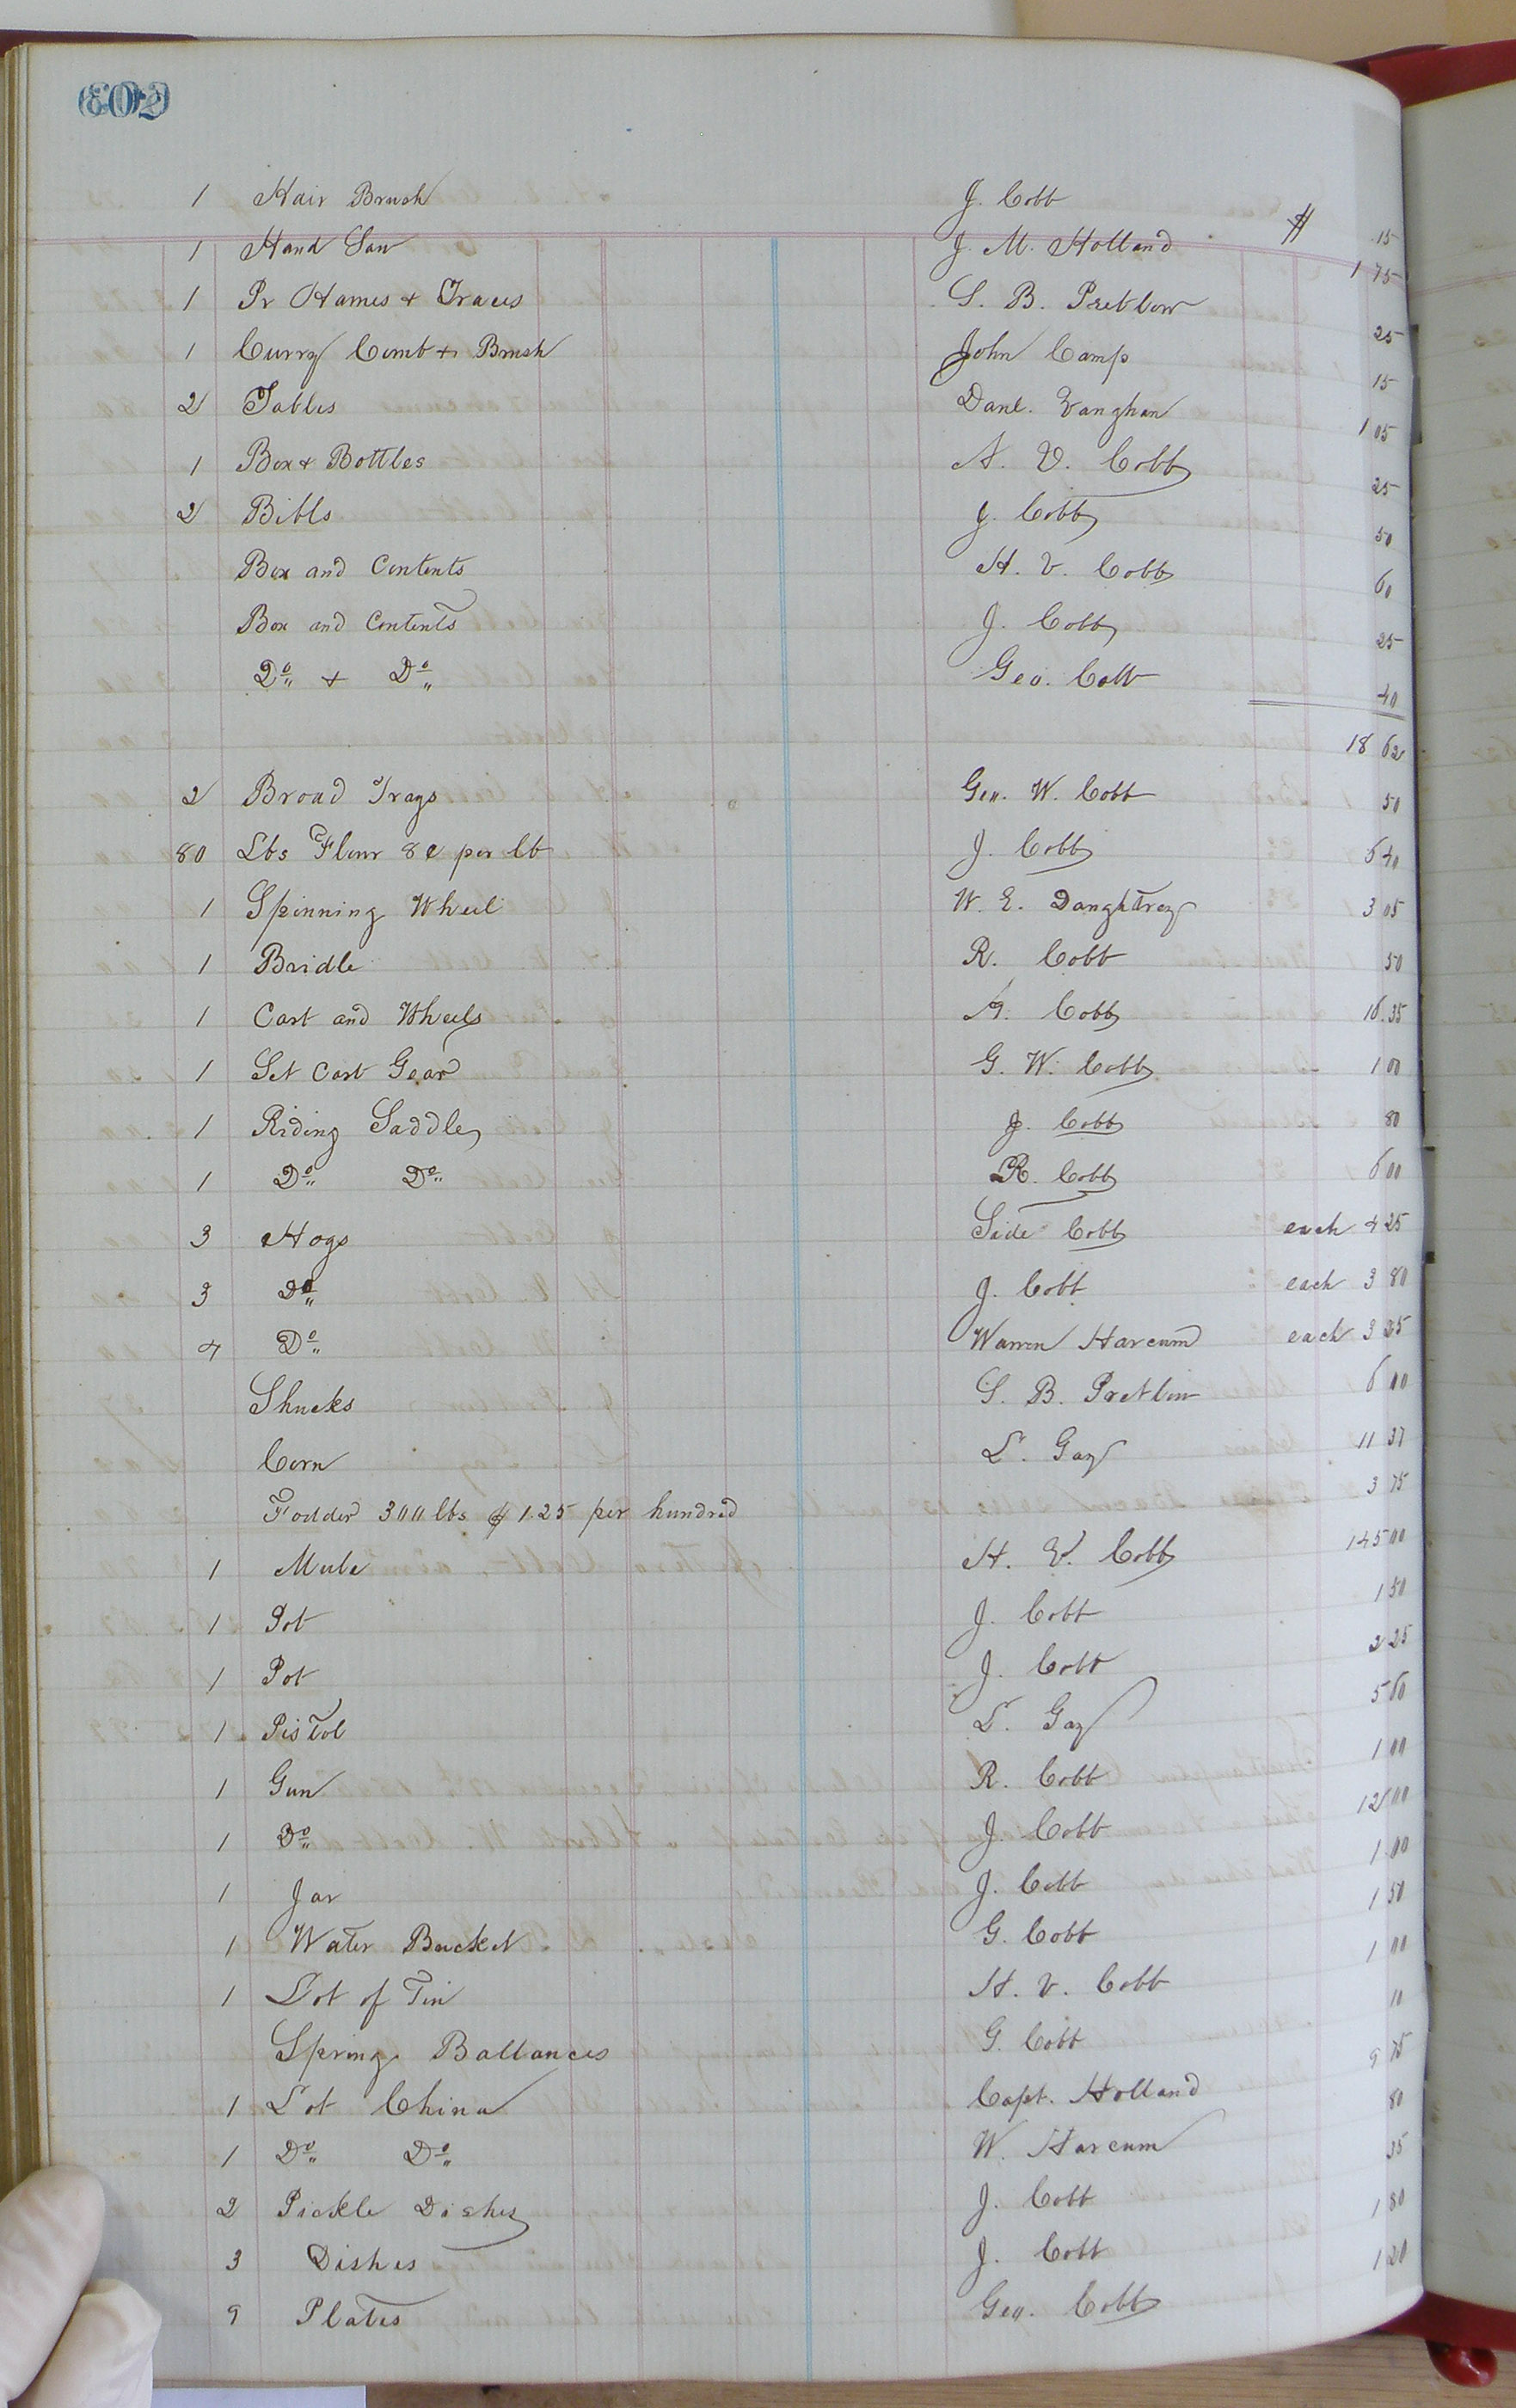 1 Hair Brush J. Cobb $ 15
1 Hand Saw J. M. Holland 1 75
1 Pr Hames & Traces S. B. Pretlow 25
1 Curry Comb & Brush John Camp 15
2 Tables Danl. Vaughan 1 05
1 Box & Bottles A. V. Cobb 25
2 Bibls J. Cobb 50
Box and Contents H. V. Cobb 60
Box and Contents J. Cobb 25
Do & Do Geo. Cobb 40
18 62
2 Broad Trays Geo. W. Cobb 50
80 Lbs Flour 8c per lb J. Cobb 6 40
1 Spinning Wheel W. E. Daughtrey 3 05
1 Bridle R. Cobb 50
1 Cart and Wheels A. Cobb 16.35
1 Set Cart Gear G. W. Cobb 1 00
1 Riding Saddle J. Cobb 80
1 Do Do R. Cobb 6 00
3 Hogs Side Cobb each 4 25
3 Do J. Cobb each 3 80
4 Do Warren Harcum each 3 25
Shucks S. B. Pretlow 6 00
Corn L. Gay 11 37
Fodder 300 lbs $1.25 per hundred 3 75
1 Mule H. V. Cobb 145 00
1 Pot J. Cobb 1 50
1 Pot J. Cobb 2 25
1 Pistol L. Gay 5 60
1 Gun R. Cobb 1 00
1 Do J. Cobb 12 00
1 Jar J. Cobb 1 00
1 Water Bucket G. Cobb 1 50
1 Lot of Tin H. V. Cobb 1 00
Spring Ballances G. Cobb 10
1 Lot China Capt. Holland 9 75
1 Do Do W. Harcum 80
2 Pickle Dishes J. Cobb 35
3 Dishes J. Cobb 1 80
9 Plates Geo. Cobb 1 20